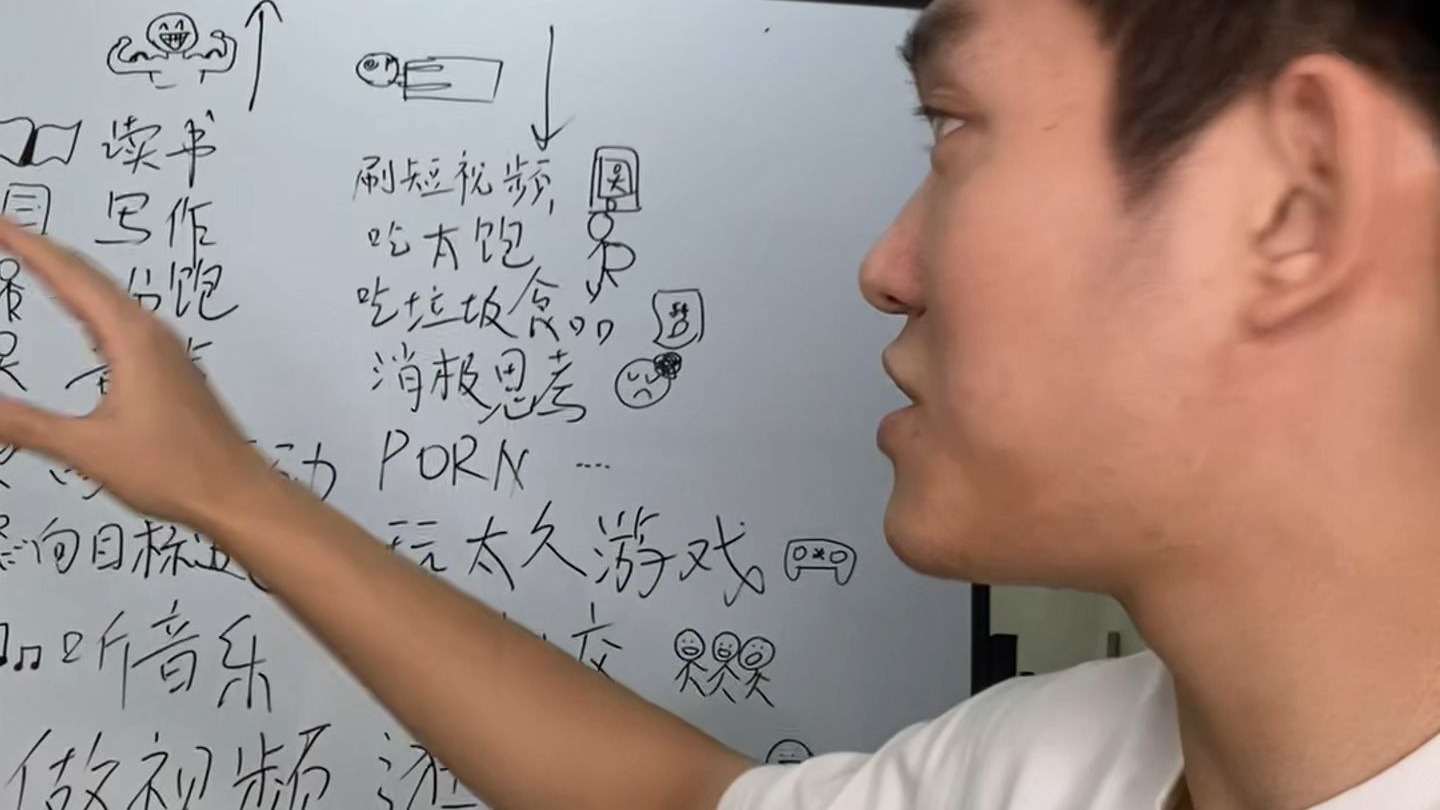 读书
刷短视频
写作
吃太饱
分饱
吃垃圾食品
消极思考
动 PORN ....
向目标 玩太久游戏
听音乐 交
做视频